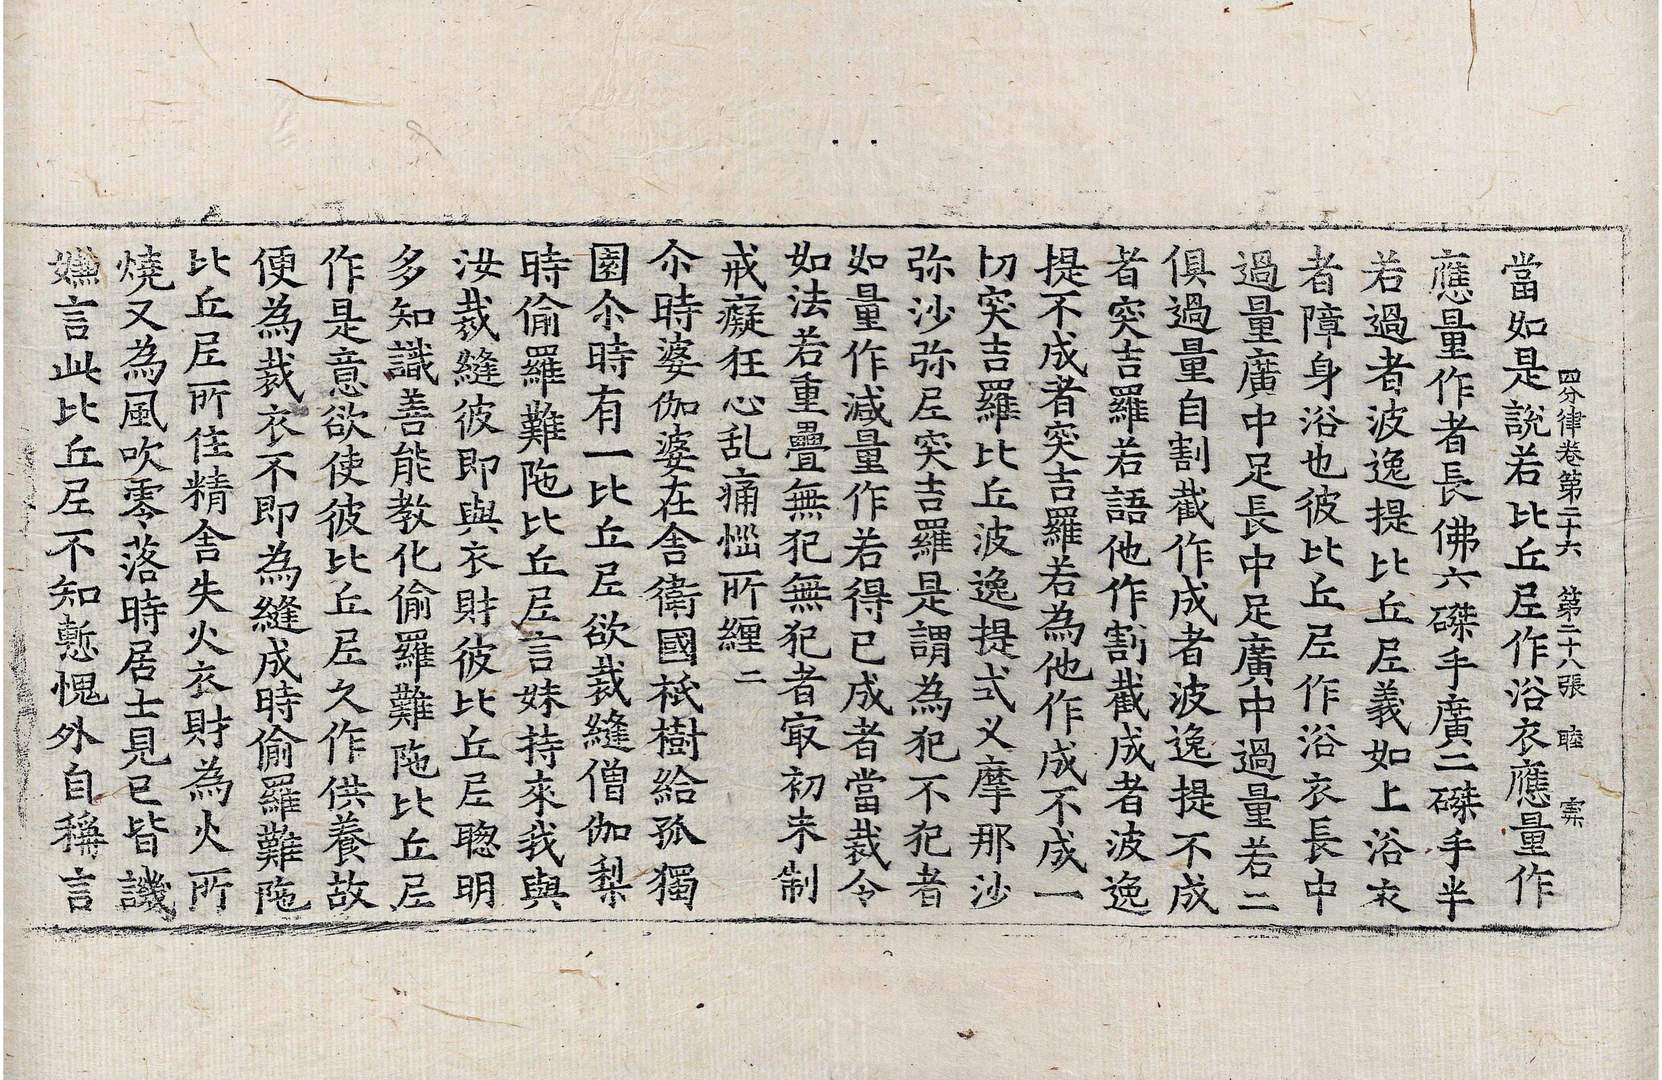 四分律卷第二十六　第二十八張　睦　寀
當如是說若比丘尼作浴衣應量作
應量作者長佛六磔手廣二磔手半
若過者波逸提比丘尼義如上浴衣
者障身浴也彼比丘尼作浴衣長中
過量廣中足長中足廣中過量若二
俱過量自割截作成者波逸提不成
者突吉羅若語他作割截成者波逸
提不成者突吉羅若為他作成不成一
切突吉羅比丘波逸提式叉摩那沙
弥沙弥尼突吉羅是謂為犯不犯者
如量作減量作若得已成者當裁令
如法若重疊無犯無犯者冣初未制
戒癡狂心乱痛惱所纏 二
尒時婆伽婆在舍衛國祇樹給孤獨
園尒時有一比丘尼欲裁縫僧伽梨
時偷羅難陁比丘尼言妹持來我與
汝裁縫彼即與衣財彼比丘尼聰明
多知識善能教化偷羅難陁比丘尼
作是意欲使彼比丘尼久作供養故
便為裁衣不即為縫成時偷羅難陁
比丘尼所住精舍失火衣財為火所
燒又為風吹零落時居士見已皆譏
嫌言此比丘尼不知慙愧外自稱言